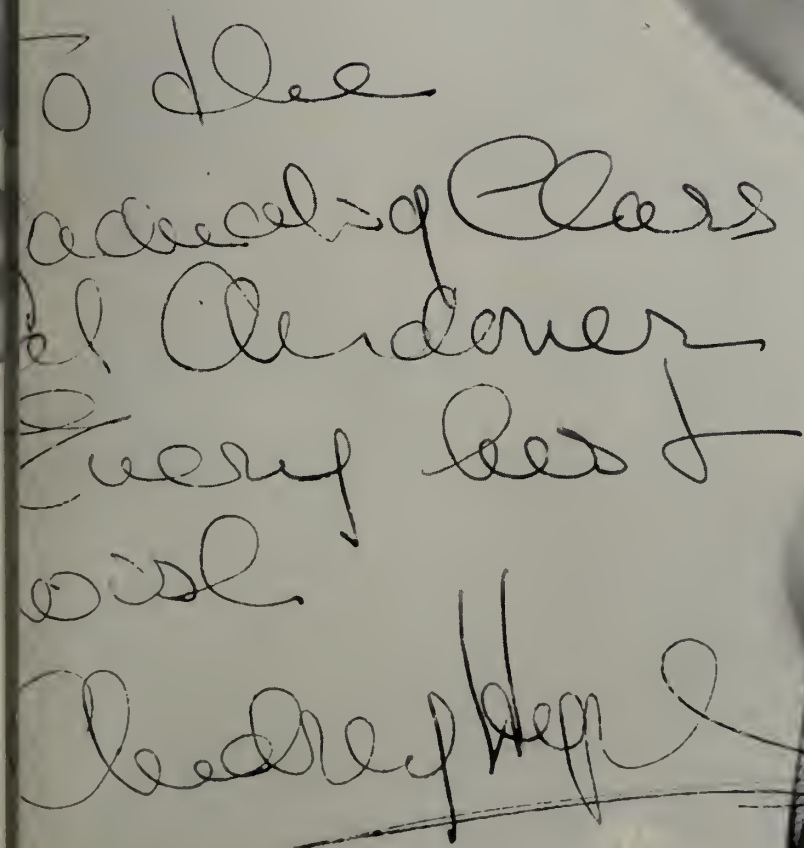 To the
aduating Class
at Andover
Every best
wish
Audrey Hep